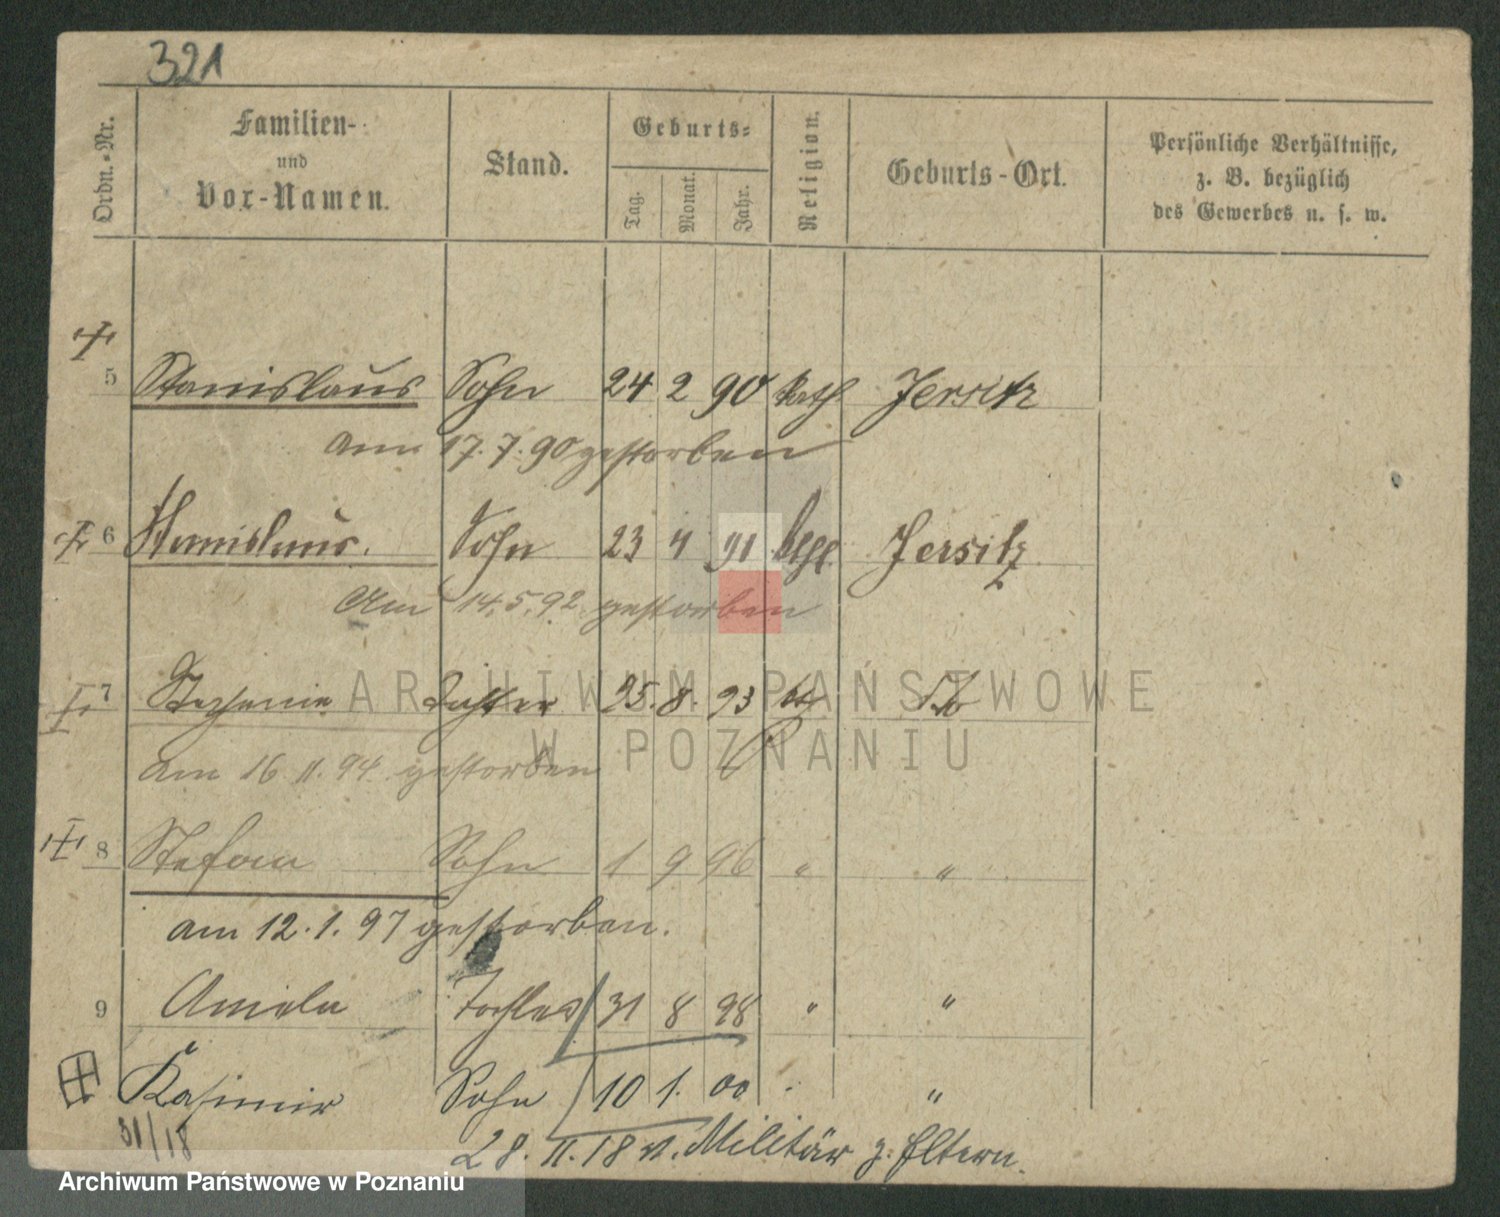 321
Ordn.-Nr. Familien- und Vor-Namen. Stand. Geburts- Tag. Monat. Jahr. Religion. Geburts-Ort. Persönliche Verhältnisse, z. B. bezüglich des Gewerbes u. s. w.
5 Stanislaus Sohn 24 2 90 kath Jersitz
am 17.7.90 gestorben
6 Stanislaus. Sohn 23 4 91 kath Jersitz
Am 14.5.92 gestorben
7 Stephanie Tochter 25. 8. 93
am 16 11. 94 gestorben
8 Stefan Sohn 1 9 96 " "
am 12.1.97 gestorben.
9 Aniela Tochter 31 8 98 " "
Kasimir Sohn 10 1. 00 "
31/18
28. II. 18 v. Militär z. Eltern.
ARCHIWUM PAŃSTWOWE
W POZNANIU
Archiwum Państwowe w Poznaniu